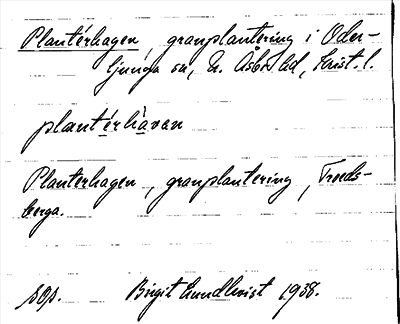 Plantérhagen, granplantering i Oder-
ljunga sn, N. Åsbo hd, Krist. l.
plantérhavan
Planterhagen, granplantering, Troeds-
berga.
sop. Birgit Lundkvist 1938.